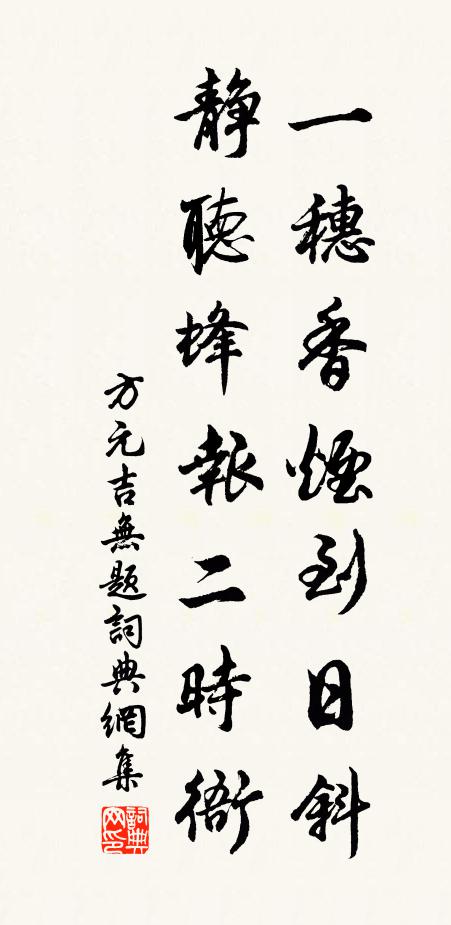 一穗香煙到日斜
靜聽蜂報二時衙
方元吉無題詞典網集
詞典网印